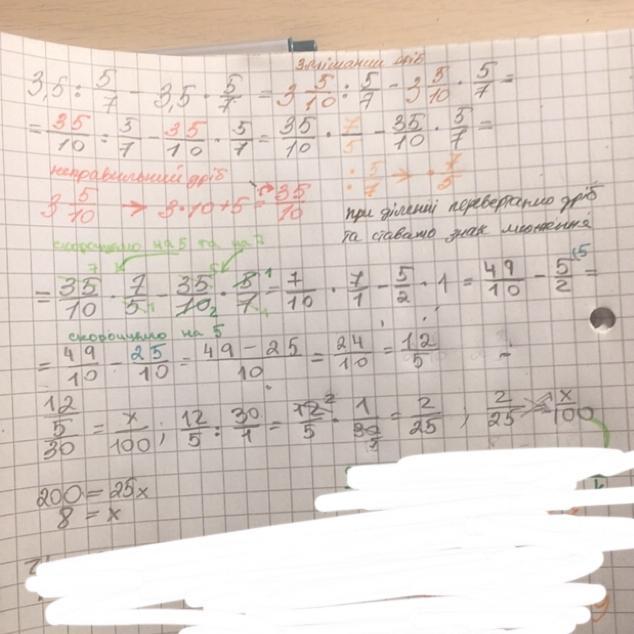 змішаний дріб
3,5 : 5/7 − 3,5 · 5/7 = 3 5/10 : 5/7 − 3 5/10 · 5/7 =
= 35/10 : 5/7 − 35/10 · 5/7 = 35/10 · 7/5 − 35/10 · 5/7 =
неправильний дріб
: 5/7 → · 7/5
3 5/10 → 3·10+5 = 35/10
при діленні перевертаємо дріб
та ставимо знак множення
скорочуємо на 5 та на 7
= 35/10 · 7/5 − 35/10 · 5/7 = 7/10 · 7/1 − 5/2 · 1 = 49/10 − 5/2 =
скорочуємо на 5
= 49/10 − 25/10 = 49 − 25/10 = 24/10 = 12/5
12/5/30 = x/100 ; 12/5 : 30/1 = 12/5 · 1/30 = 2/25 ; 2/25 = x/100
200 = 25x
8 = x